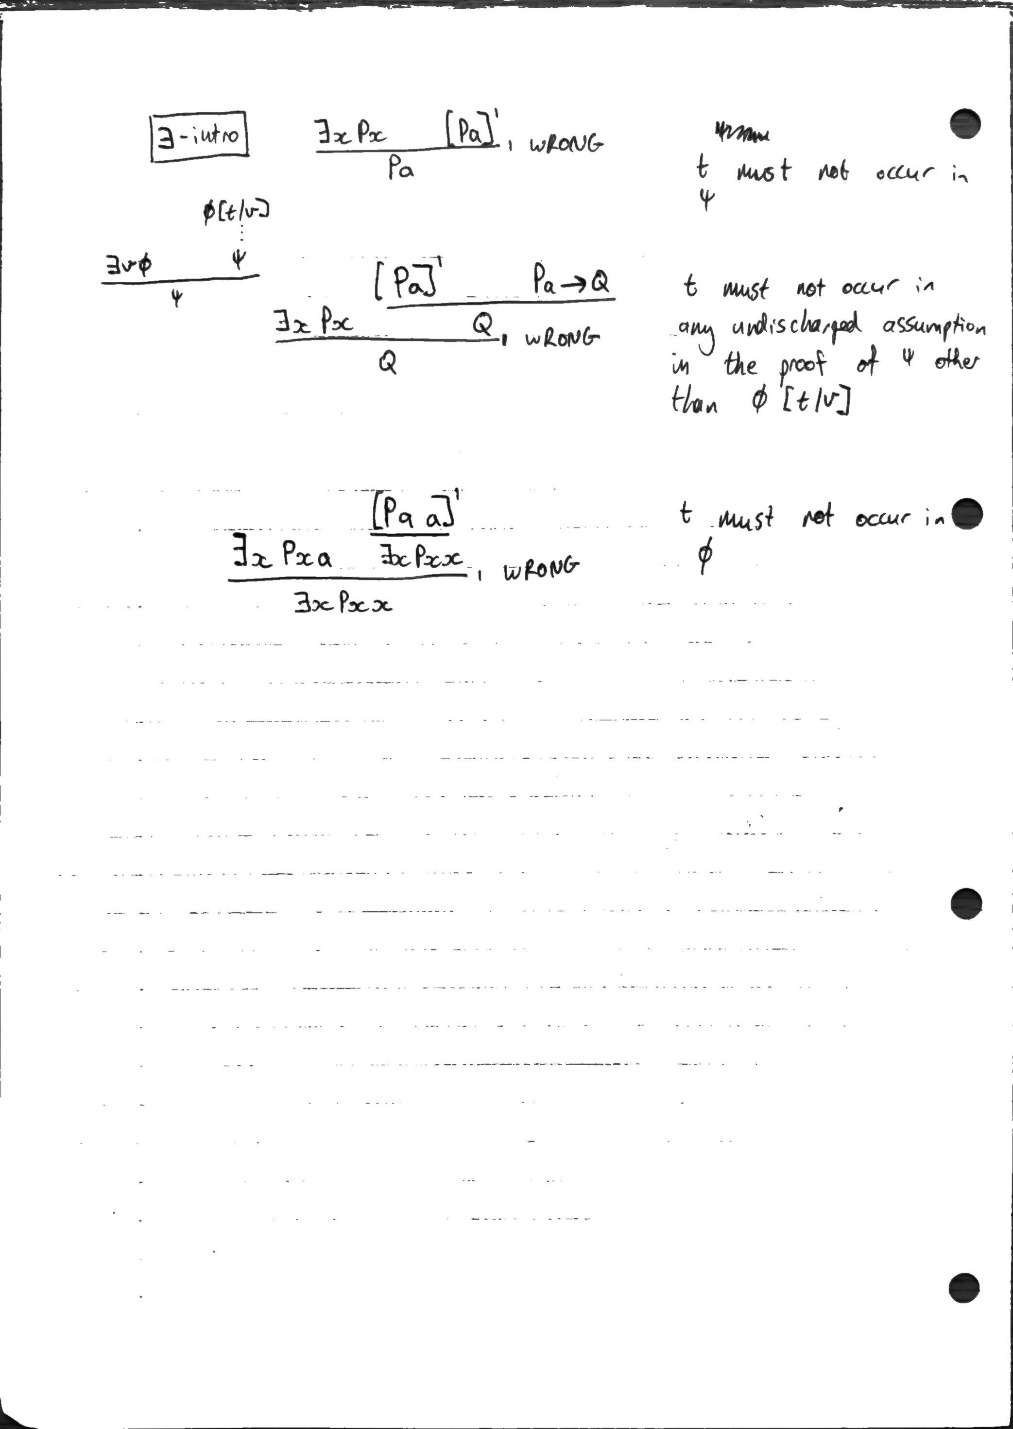 ∃-intro
∃x Px [Pa]¹
1 WRONG
Pa
t must not occur in
ψ
ϕ[t/v]
⋮
∃vϕ ψ
ψ
[Pa]¹ Pa→Q
∃x Px Q
1 WRONG
Q
t must not occur in
any undischarged assumption
in the proof of ψ other
than ϕ [t/v]
[Pa a]¹
∃x Pxa ∃xPxx
1 WRONG
∃xPxx
t must not occur in
ϕ